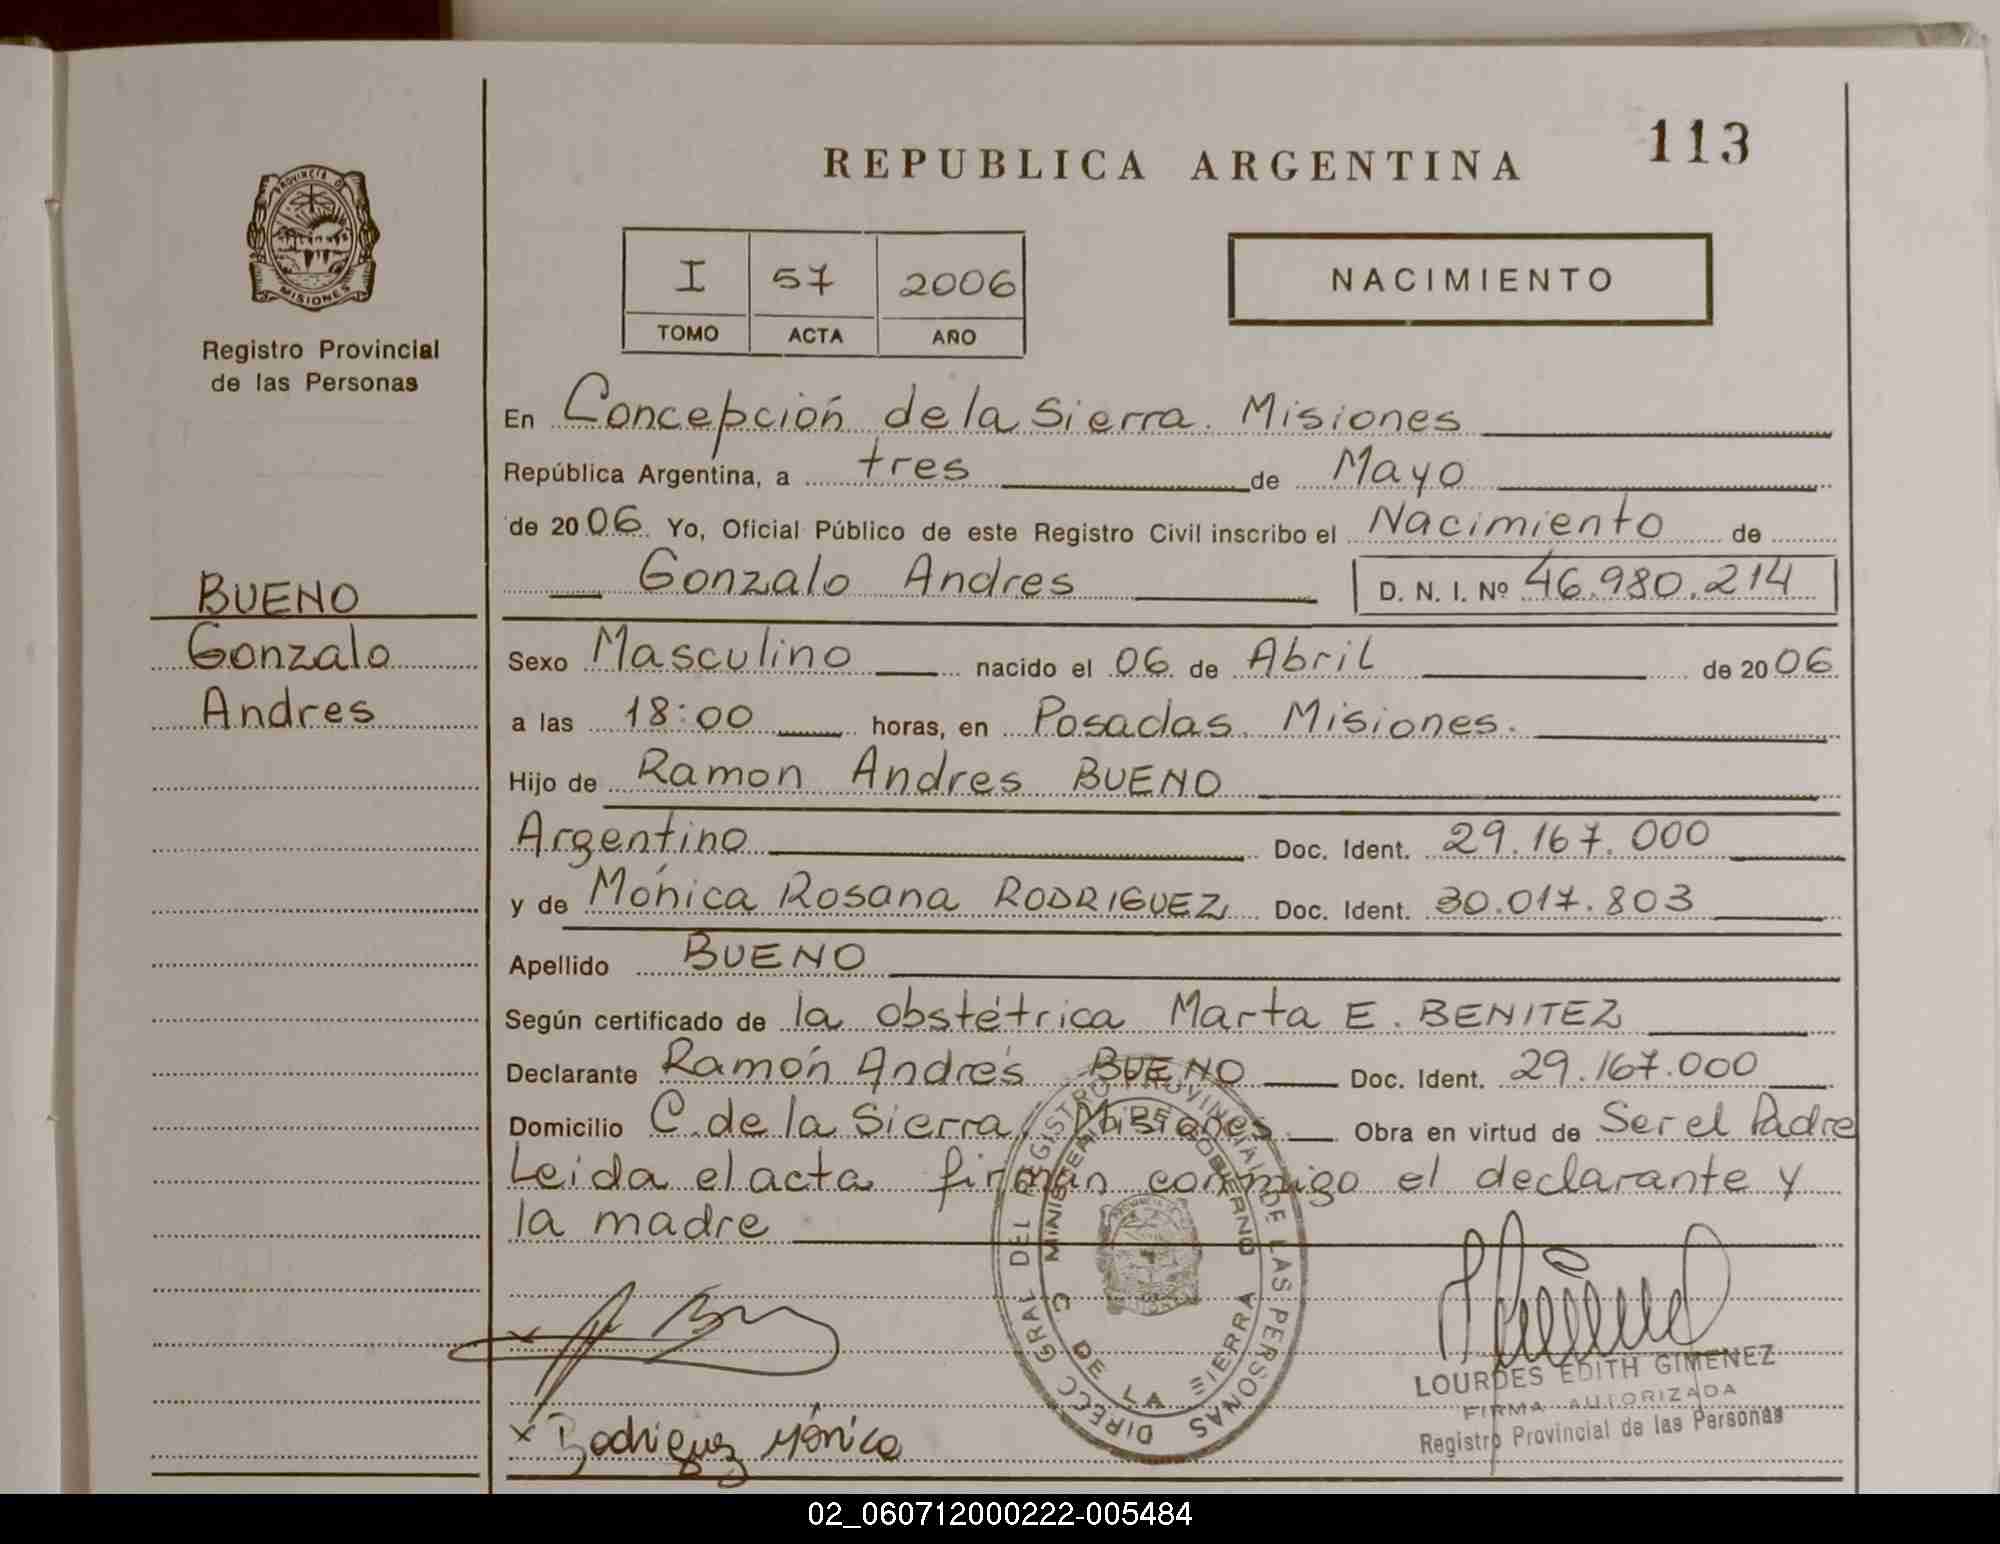 113
REPUBLICA ARGENTINA
PROVINCIA DE
MISIONES
Registro Provincial
de las Personas
I 57 2006
TOMO ACTA AÑO
NACIMIENTO
En Concepción de la Sierra. Misiones
República Argentina, a tres de Mayo
de 2006. Yo, Oficial Público de este Registro Civil inscribo el Nacimiento de
Gonzalo Andres D. N. I. Nº 46.980.214
BUENO
Gonzalo
Andres
Sexo Masculino nacido el 06 de Abril de 2006
a las 18:00 horas, en Posadas. Misiones.
Hijo de Ramon Andres BUENO
Argentino Doc. Ident. 29.167.000
y de Mónica Rosana RODRIGUEZ Doc. Ident. 30.017.803
Apellido BUENO
Según certificado de la obstétrica Marta E. BENITEZ
Declarante Ramón Andrés BUENO Doc. Ident. 29.167.000
Domicilio C. de la Sierra, Misiones Obra en virtud de Ser el Padre
Leida el acta firman conmigo el declarante y
la madre
DIRECC GRAL DEL REGISTRO PROVINCIAL DE LAS PERSONAS
MINISTERIO DE GOBIERNO
C DE LA SIERRA
x Rodriguez Mónica
LOURDES EDITH GIMENEZ
FIRMA AUTORIZADA
Registro Provincial de las Personas
02_060712000222-005484